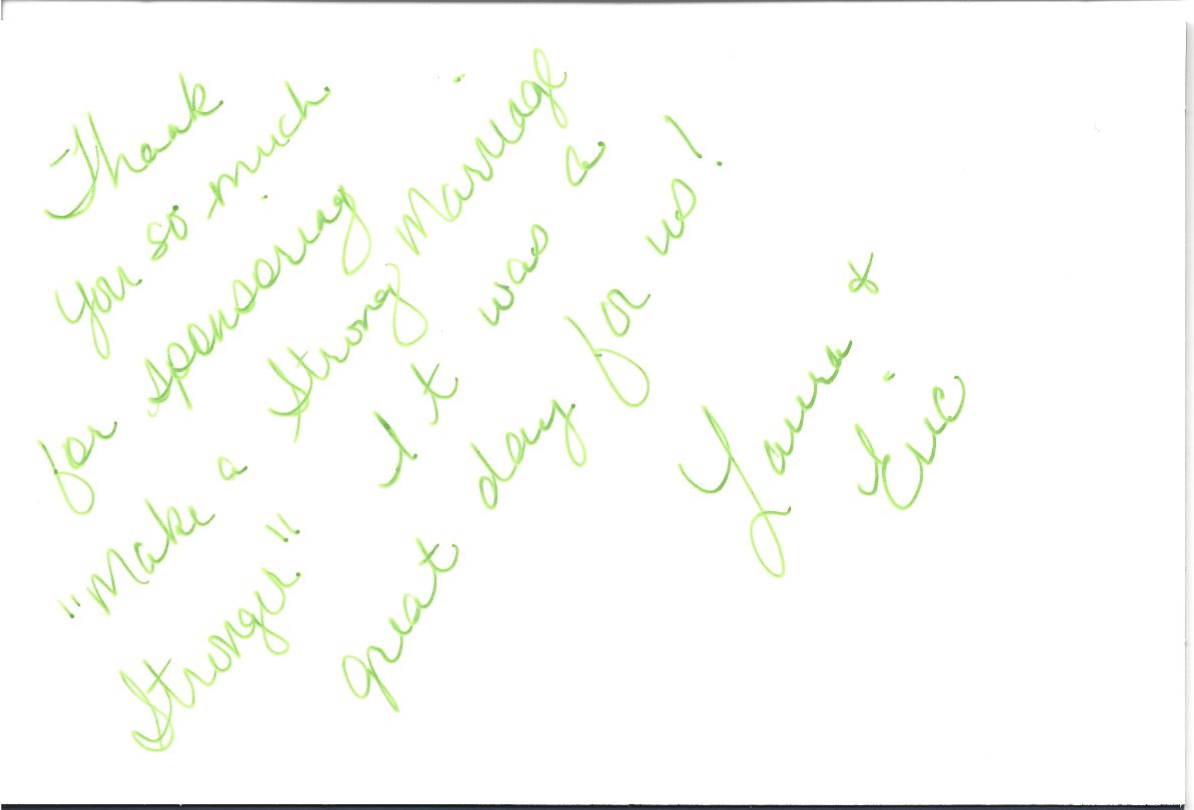 Thank
you so much
for sponsoring
"Make a Strong Marriage
Stronger" It was a
great day for us!
Laura &
Eric